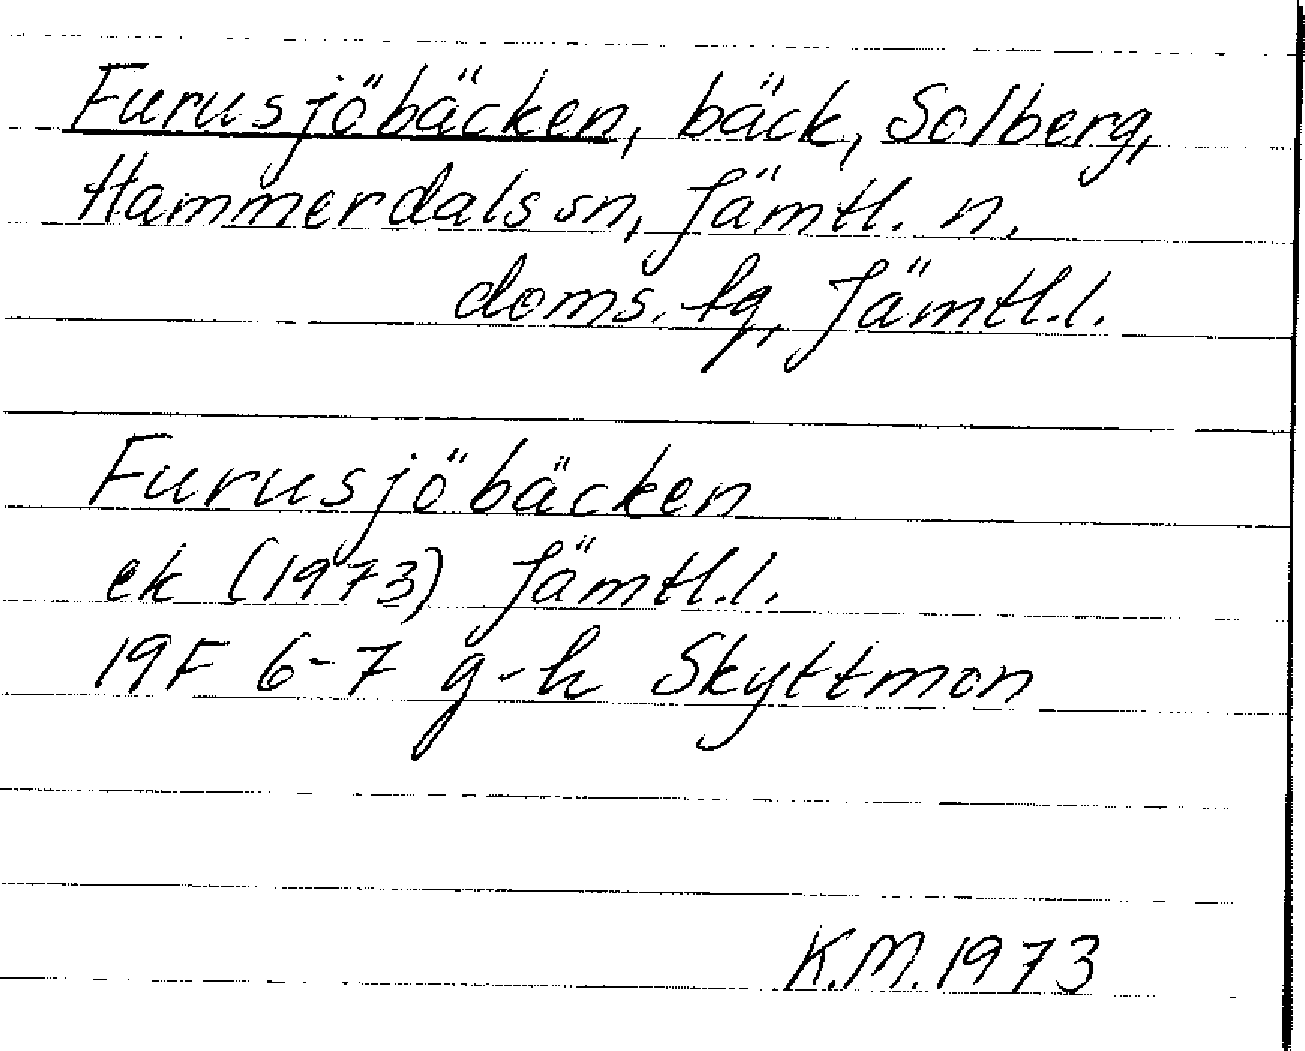 Furusjöbäcken, bäck, Solberg,
Hammerdals sn, Jämtl. n.
doms. tg, Jämtl.l.
Furusjöbäcken
ek (1973) Jämtl.l.
19F 6-7 g-h Skyttmon
K.M. 1973